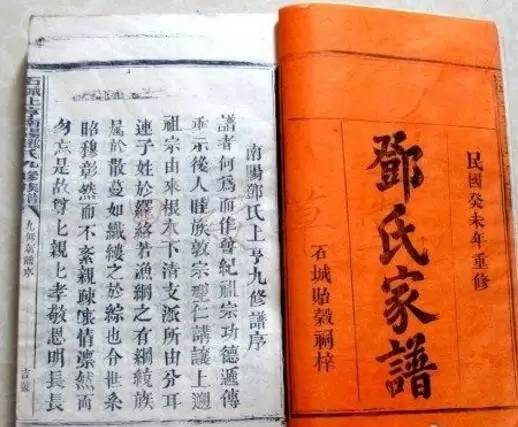 民國癸未年重修
鄧氏家譜
石城貽穀祠梓
南陽鄧氏上亨九修譜序
譜者何爲而作曾紀祖宗功德遞傳
垂宗後人睦族敦宗型仁講讓上遡
祖宗由來根本下清支派所由分耳
連子姓於羅絡若漁網之有綱統族
屬於散蔓如織縷之於綜也今世系
昭穆彰然而不紊親疎情凛然而
勿忘是故尊上親上孝敬恩明長長
石城上亨南陽鄧氏九修族譜
九修新譜序